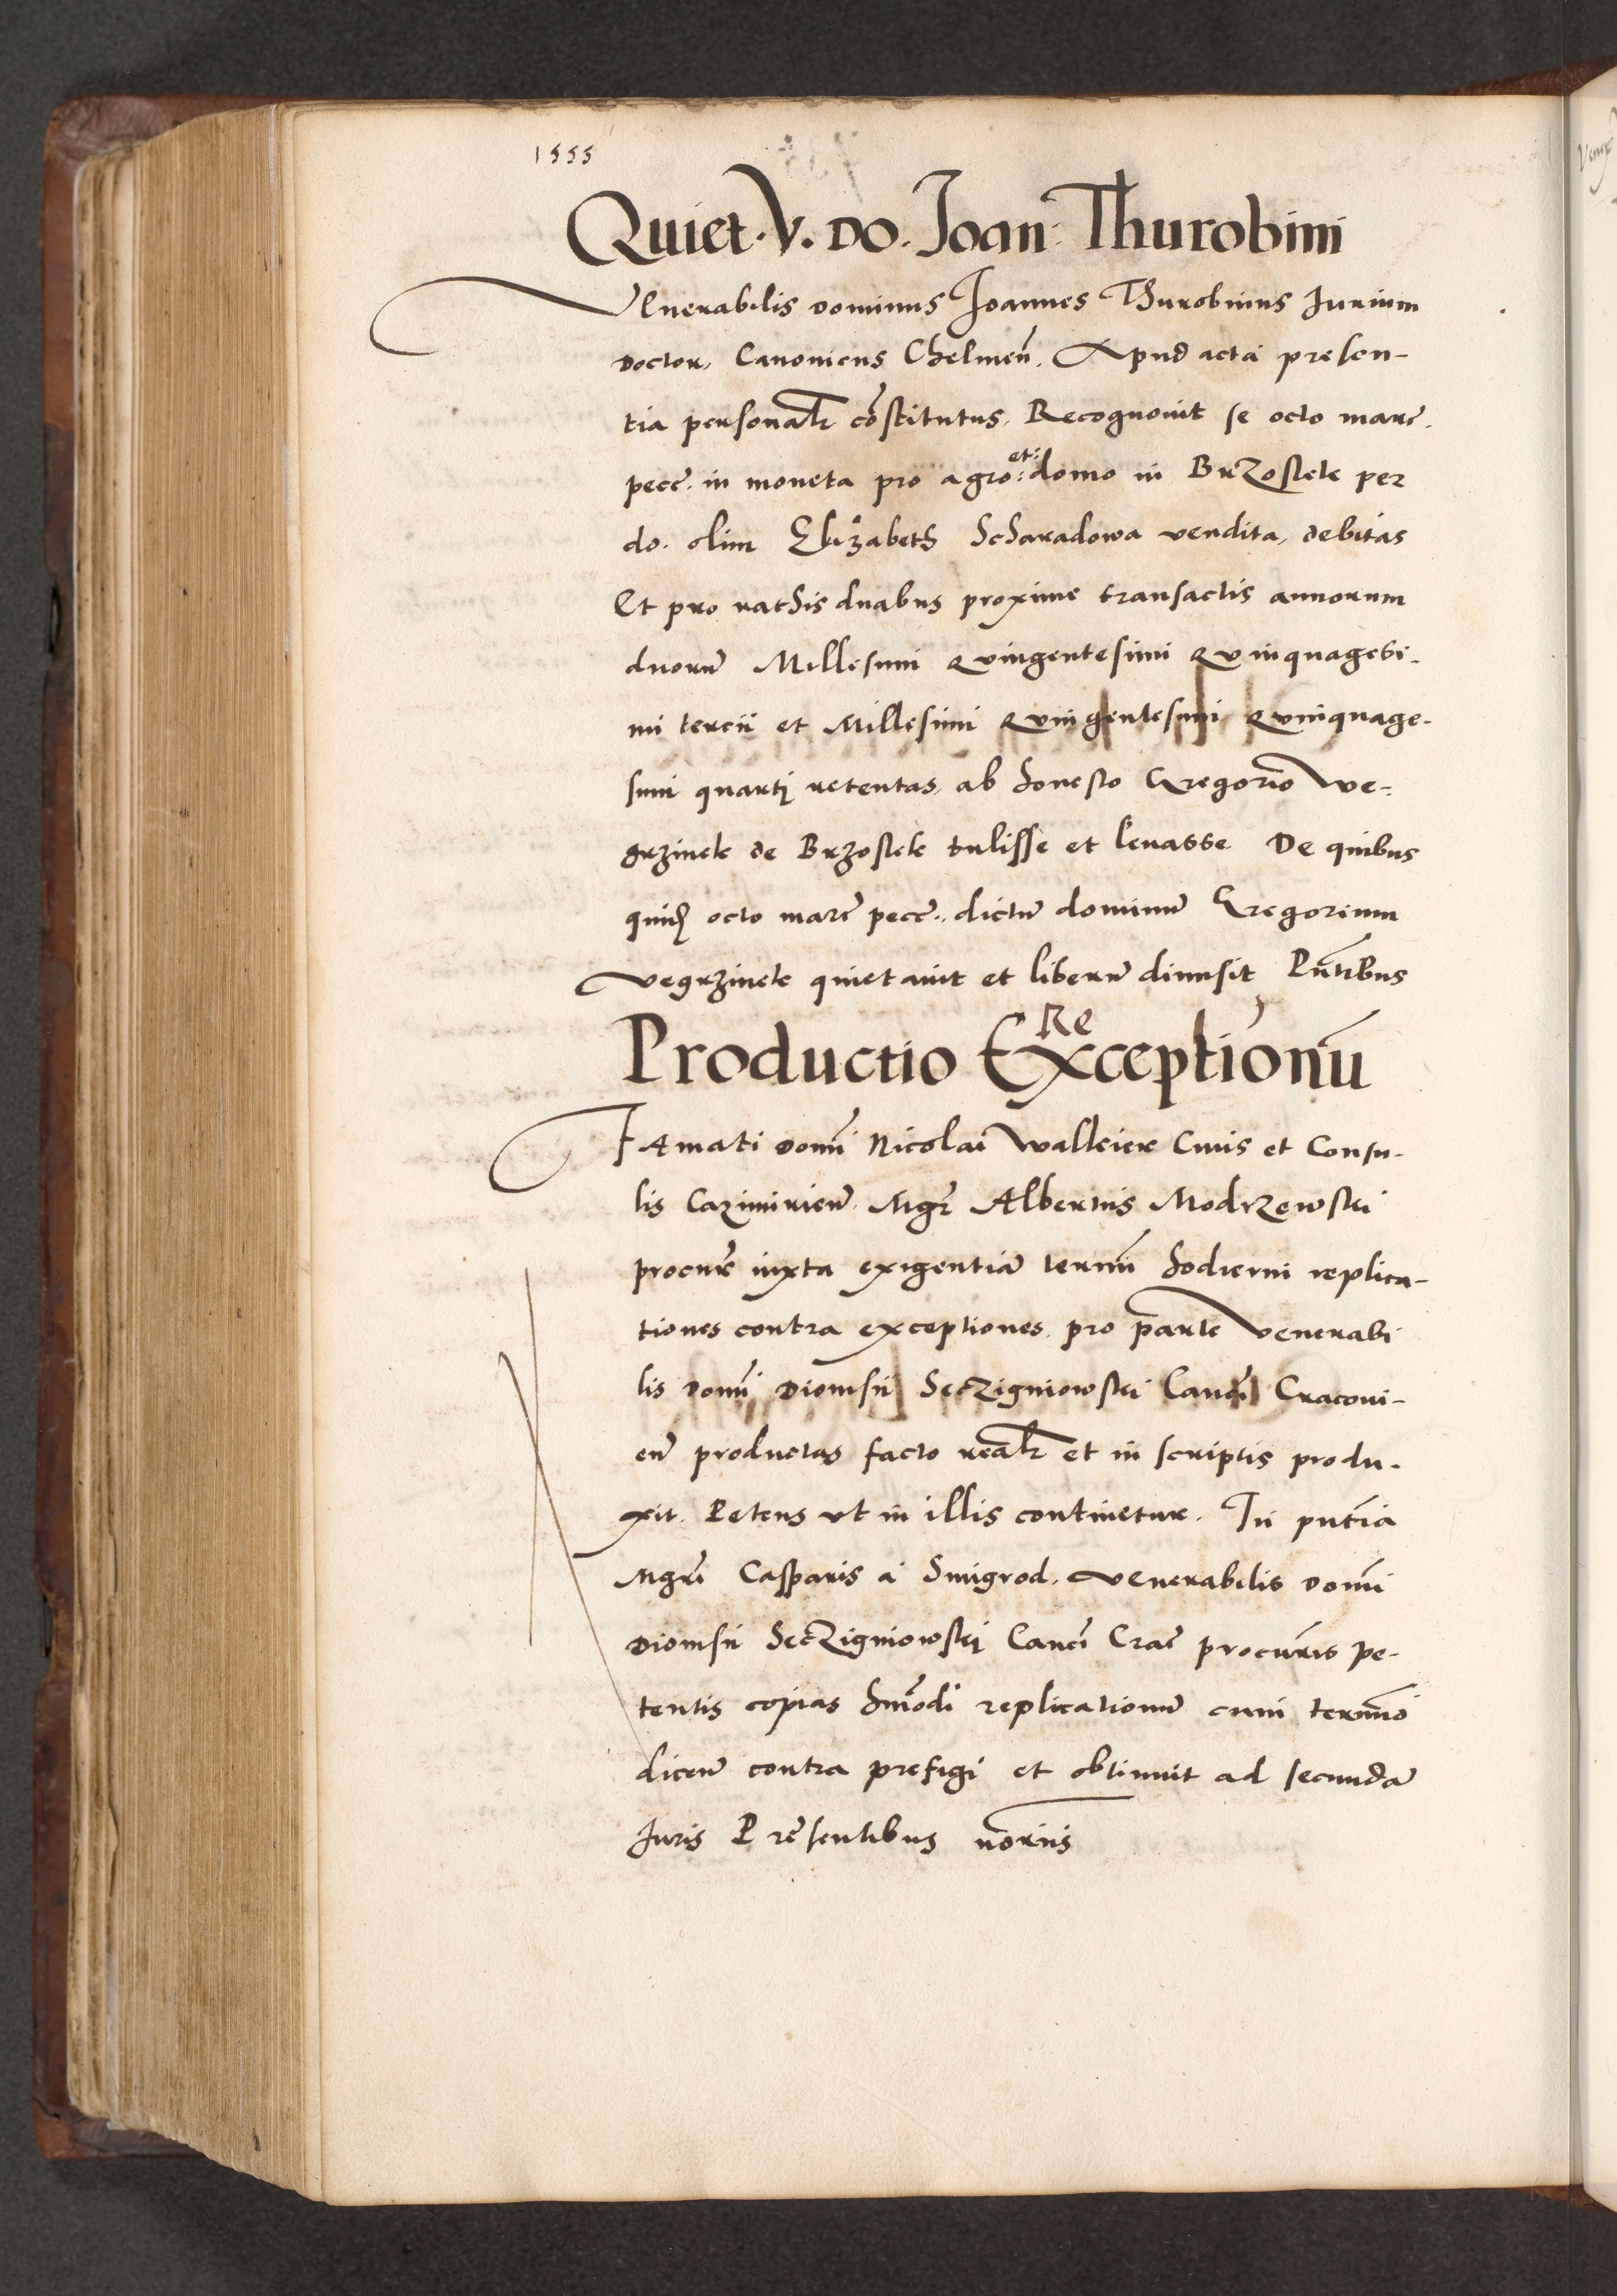 1555
Quiet. V. DO. Joan: Thurobini
Venerabilis dominus Joannes Thurobinus Jurium
doctor, Canonicus Chelmeñ. Apud acta presen-
tia personalr cōstitutus, Recognouit se octo marc.
pecc. in moneta pro agro et domo in Brzostek per
do. olim Elizabeth Scharadowa vendita, debitas
Et pro rathis duabus proxime transactis annorum
duorū Millesimi Quingentesimi Quinquagesi-
mi tercii et Millesimi Quingentesimi Quinquage-
simi quarti retentas, ab honesto Gregorio We-
grzinek de Brzostek tulisse et leuasse. De quibus
quidē octo marc pecc. dictū dominū Gregorium
Vegrzinek quietauit et liberū dimisit Pñtibus
Re
Productio Exceptionū
FAmati domī Nicolai Walkier Ciuis et Consu-
lis Cazimirieñ. Mgr Albertus Modrzewski
procur iuxta exigentiā termī hodierni replica-
tiones contra exceptiones pro parte Venerabi
lis domī Dionisii Seczigniowski Canci Cracoui-
eñ productas facto realr et in scriptis produ-
xit. Petens vt in illis continetur. In pñtia
Mgri Casparis a Smigrod, Venerabilis domī
Dionisii Seczigniowski Canci Crac procuris pe-
tentis copias hmōdi replicationū cum termino
dicenḋ contra prefigi et obtinuit ad secundā
Juris Presentibus noriis